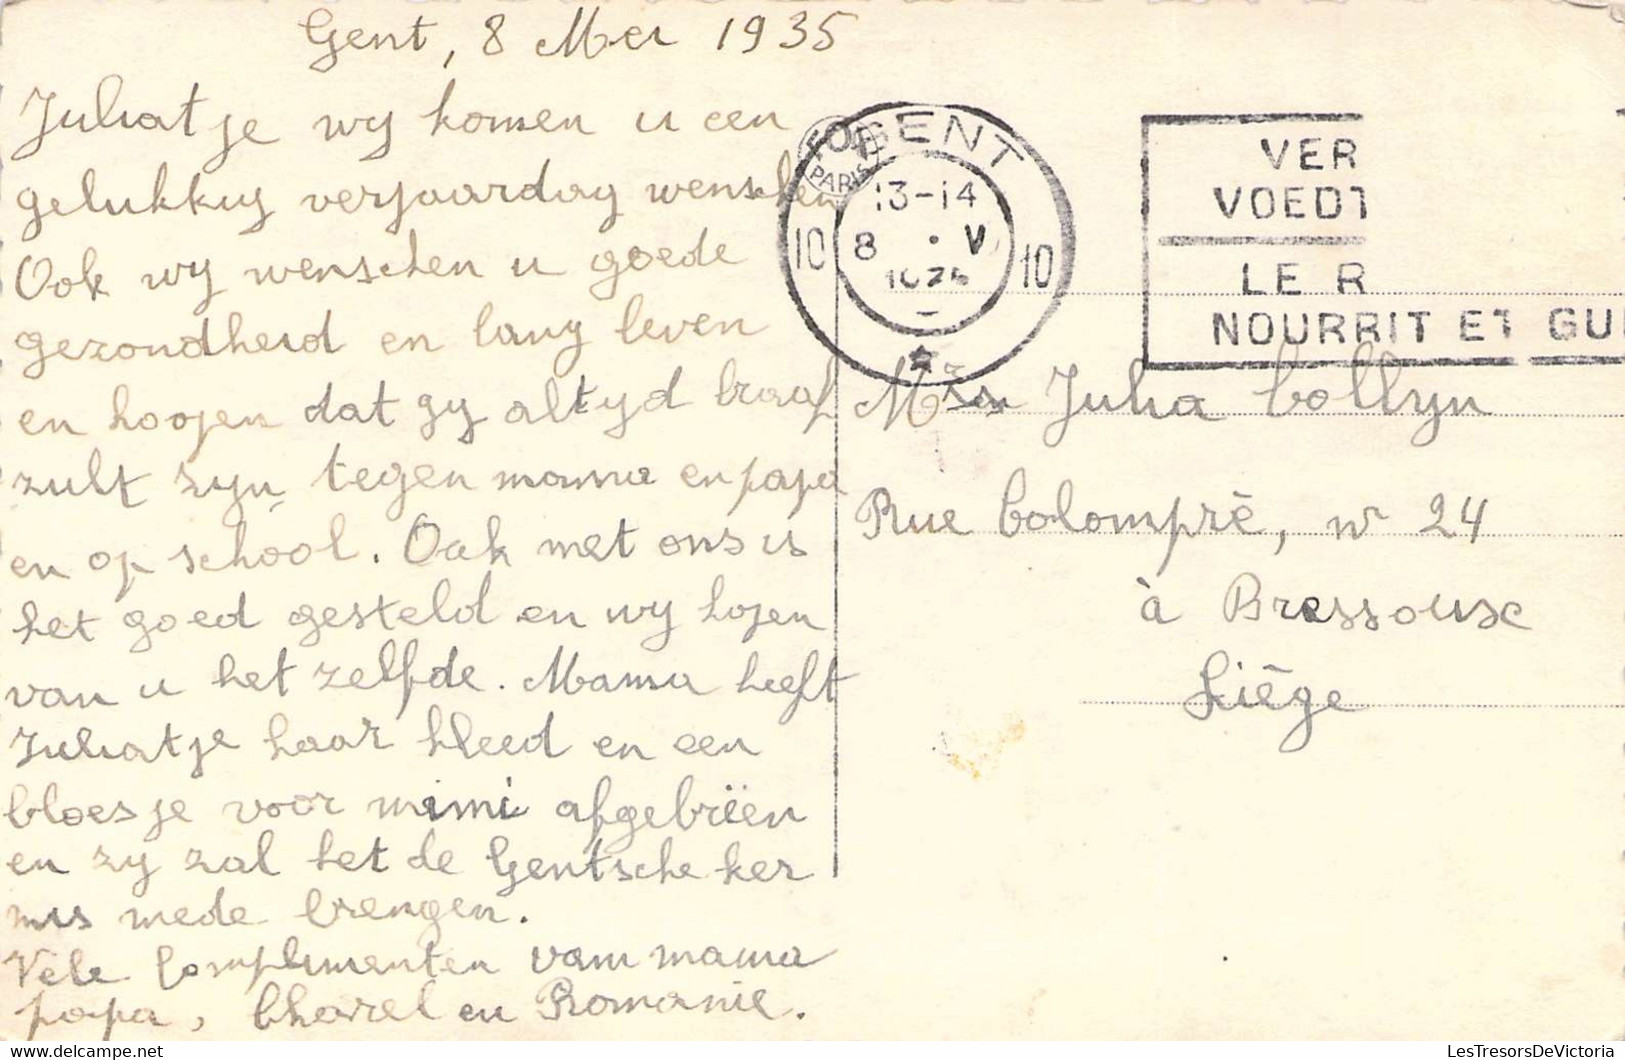 Gent, 8 Mei 1935
Juliatje wy komen u een
gelukkig verjaardag wenschen
Ook wy wenschen u goede
gezondheid en lang leven
en hoopen dat gy altyd braaf
zult zyn tegen mama en papa
en op school. Ook met ons is
het goed gesteld en wy hopen
van u het zelfde. Mama heeft
Juliatje haar kleed en een
bloesje voor mimi afgebriëen
en zy zal het de Gentsche ker
mis mede brengen.
Vele Complimenten van mama
papa, Charel en Romanie.
TOP
PARIS
GENT
13-14
10 8 · V 10
VER
VOEDT
LE R
NOURRIT ET GU
Julia Collyn
Rue Colompré, nr 24
à Bressoux
Liège
LesTresorsDeVictoria